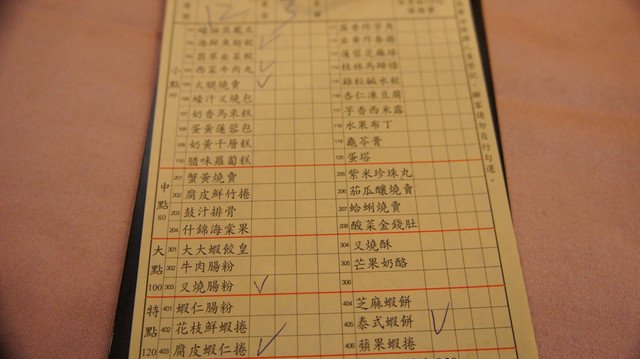 12 3
蠔油
蓮蓉芝麻球
西菜牛肉丸 桂林馬蹄條
火腿燒賣
蠔汁叉燒包 116 杏仁凍豆腐
107 奶香馬來糕 117 芋香西米露
108 蛋黃蓮蓉包 118 水果布丁
109 奶黃千層糕 119 龜苓膏
110 臘味蘿蔔糕 120 蛋塔
小點 60
201 蟹黃燒賣 205 紫米珍珠丸
202 腐皮鮮竹捲 206 茄瓜釀燒賣
203 鼓汁排骨 207 蛤蜊燒賣
204 什錦海棠果 208 酸菜金錢肚
中點 80
301 大大蝦餃皇 304 叉燒酥
302 牛肉腸粉 305 芒果奶酪
303 叉燒腸粉 306
大點 100
401 蝦仁腸粉 404 芝麻蝦餅
402 花枝鮮蝦捲 405 泰式蝦餅
403 腐皮蝦仁捲 406 蘋果蝦捲
特點 120
顧客請勿自行勾選。